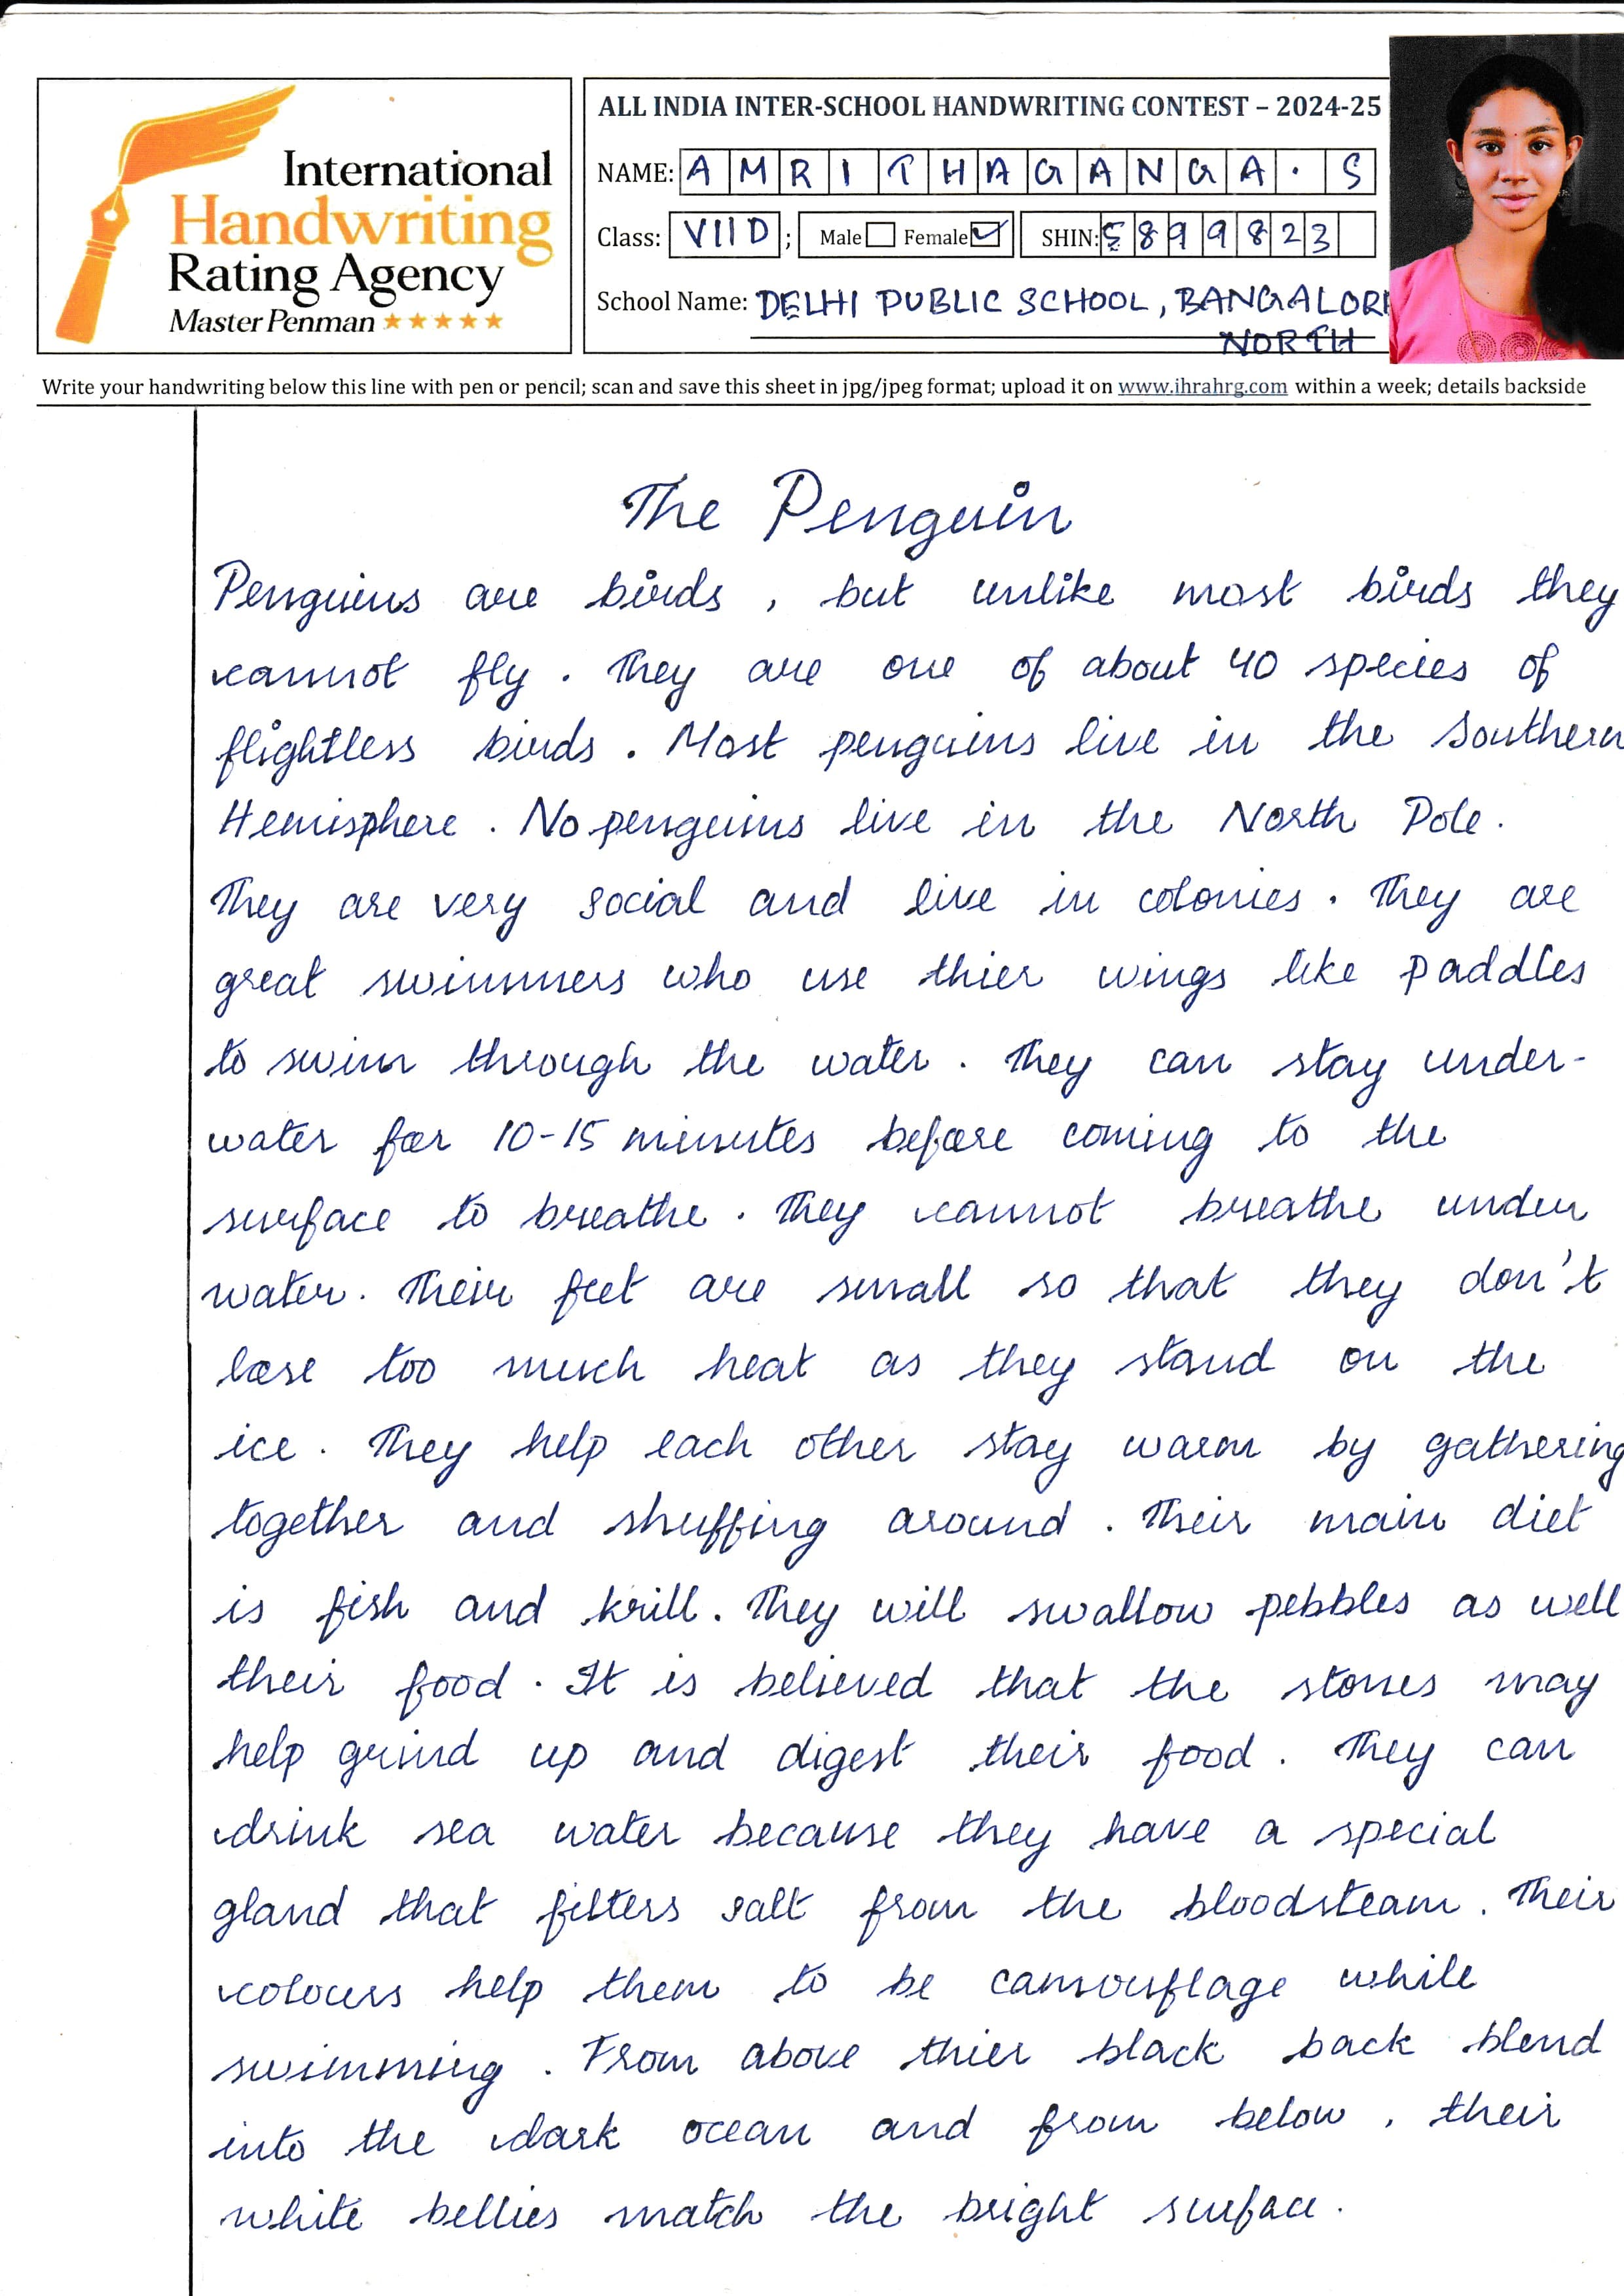 International
Handwriting
Rating Agency
Master Penman
ALL INDIA INTER-SCHOOL HANDWRITING CONTEST – 2024-25
NAME: AMRITHAGANGA. S
Class: VII D; Male Female SHIN: 5899823
School Name: DELHI PUBLIC SCHOOL, BANGALORE
NORTH
Write your handwriting below this line with pen or pencil; scan and save this sheet in jpg/jpeg format; upload it on www.ihrahrg.com within a week; details backside
The Penguin
Penguins are birds , but unlike most birds they
cannot fly . They are one of about 40 species of
flightless birds . Most penguins live in the Southern
Hemisphere . No penguins live in the North Pole .
They are very social and live in colonies . They are
great swimmers who use thier wings like paddles
to swim through the water . They can stay under-
water for 10-15 minutes before coming to the
surface to breathe . They cannot breathe under
water . Their feet are small so that they don't
lose too much heat as they stand on the
ice . They help each other stay warm by gathering
together and shuffing around . Their main diet
is fish and krill . They will swallow pebbles as well
their food . It is believed that the stones may
help grind up and digest their food . They can
drink sea water because they have a special
gland that filters salt from the bloodsteam . Their
colours help them to be camouflage while
swimming . From above thier black back blend
into the dark ocean and from below , their
white bellies match the bright surface .